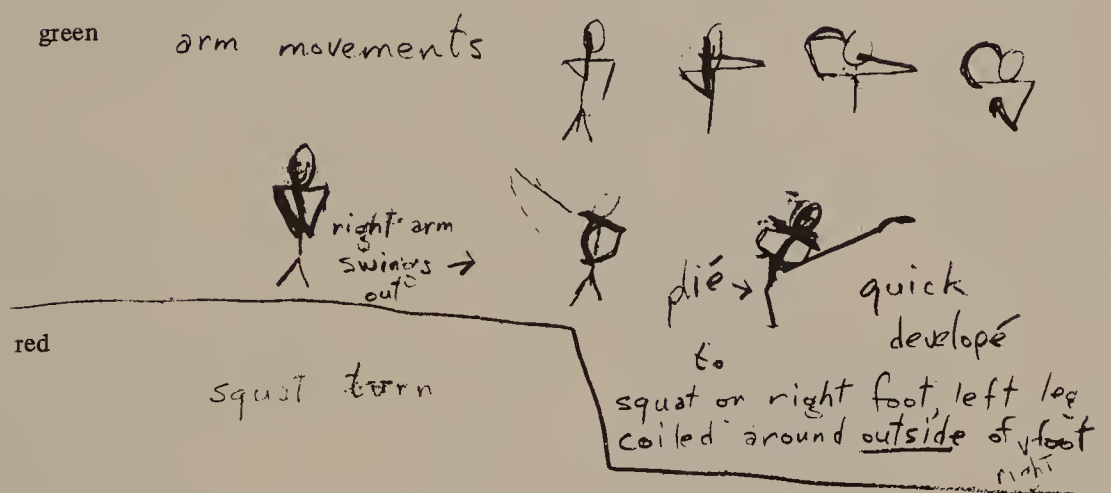 green
arm movements
right arm
swings →
out
plié →
quick
developé
red
squat turn
to
squat on right foot, left leg
coiled around outside of right foot